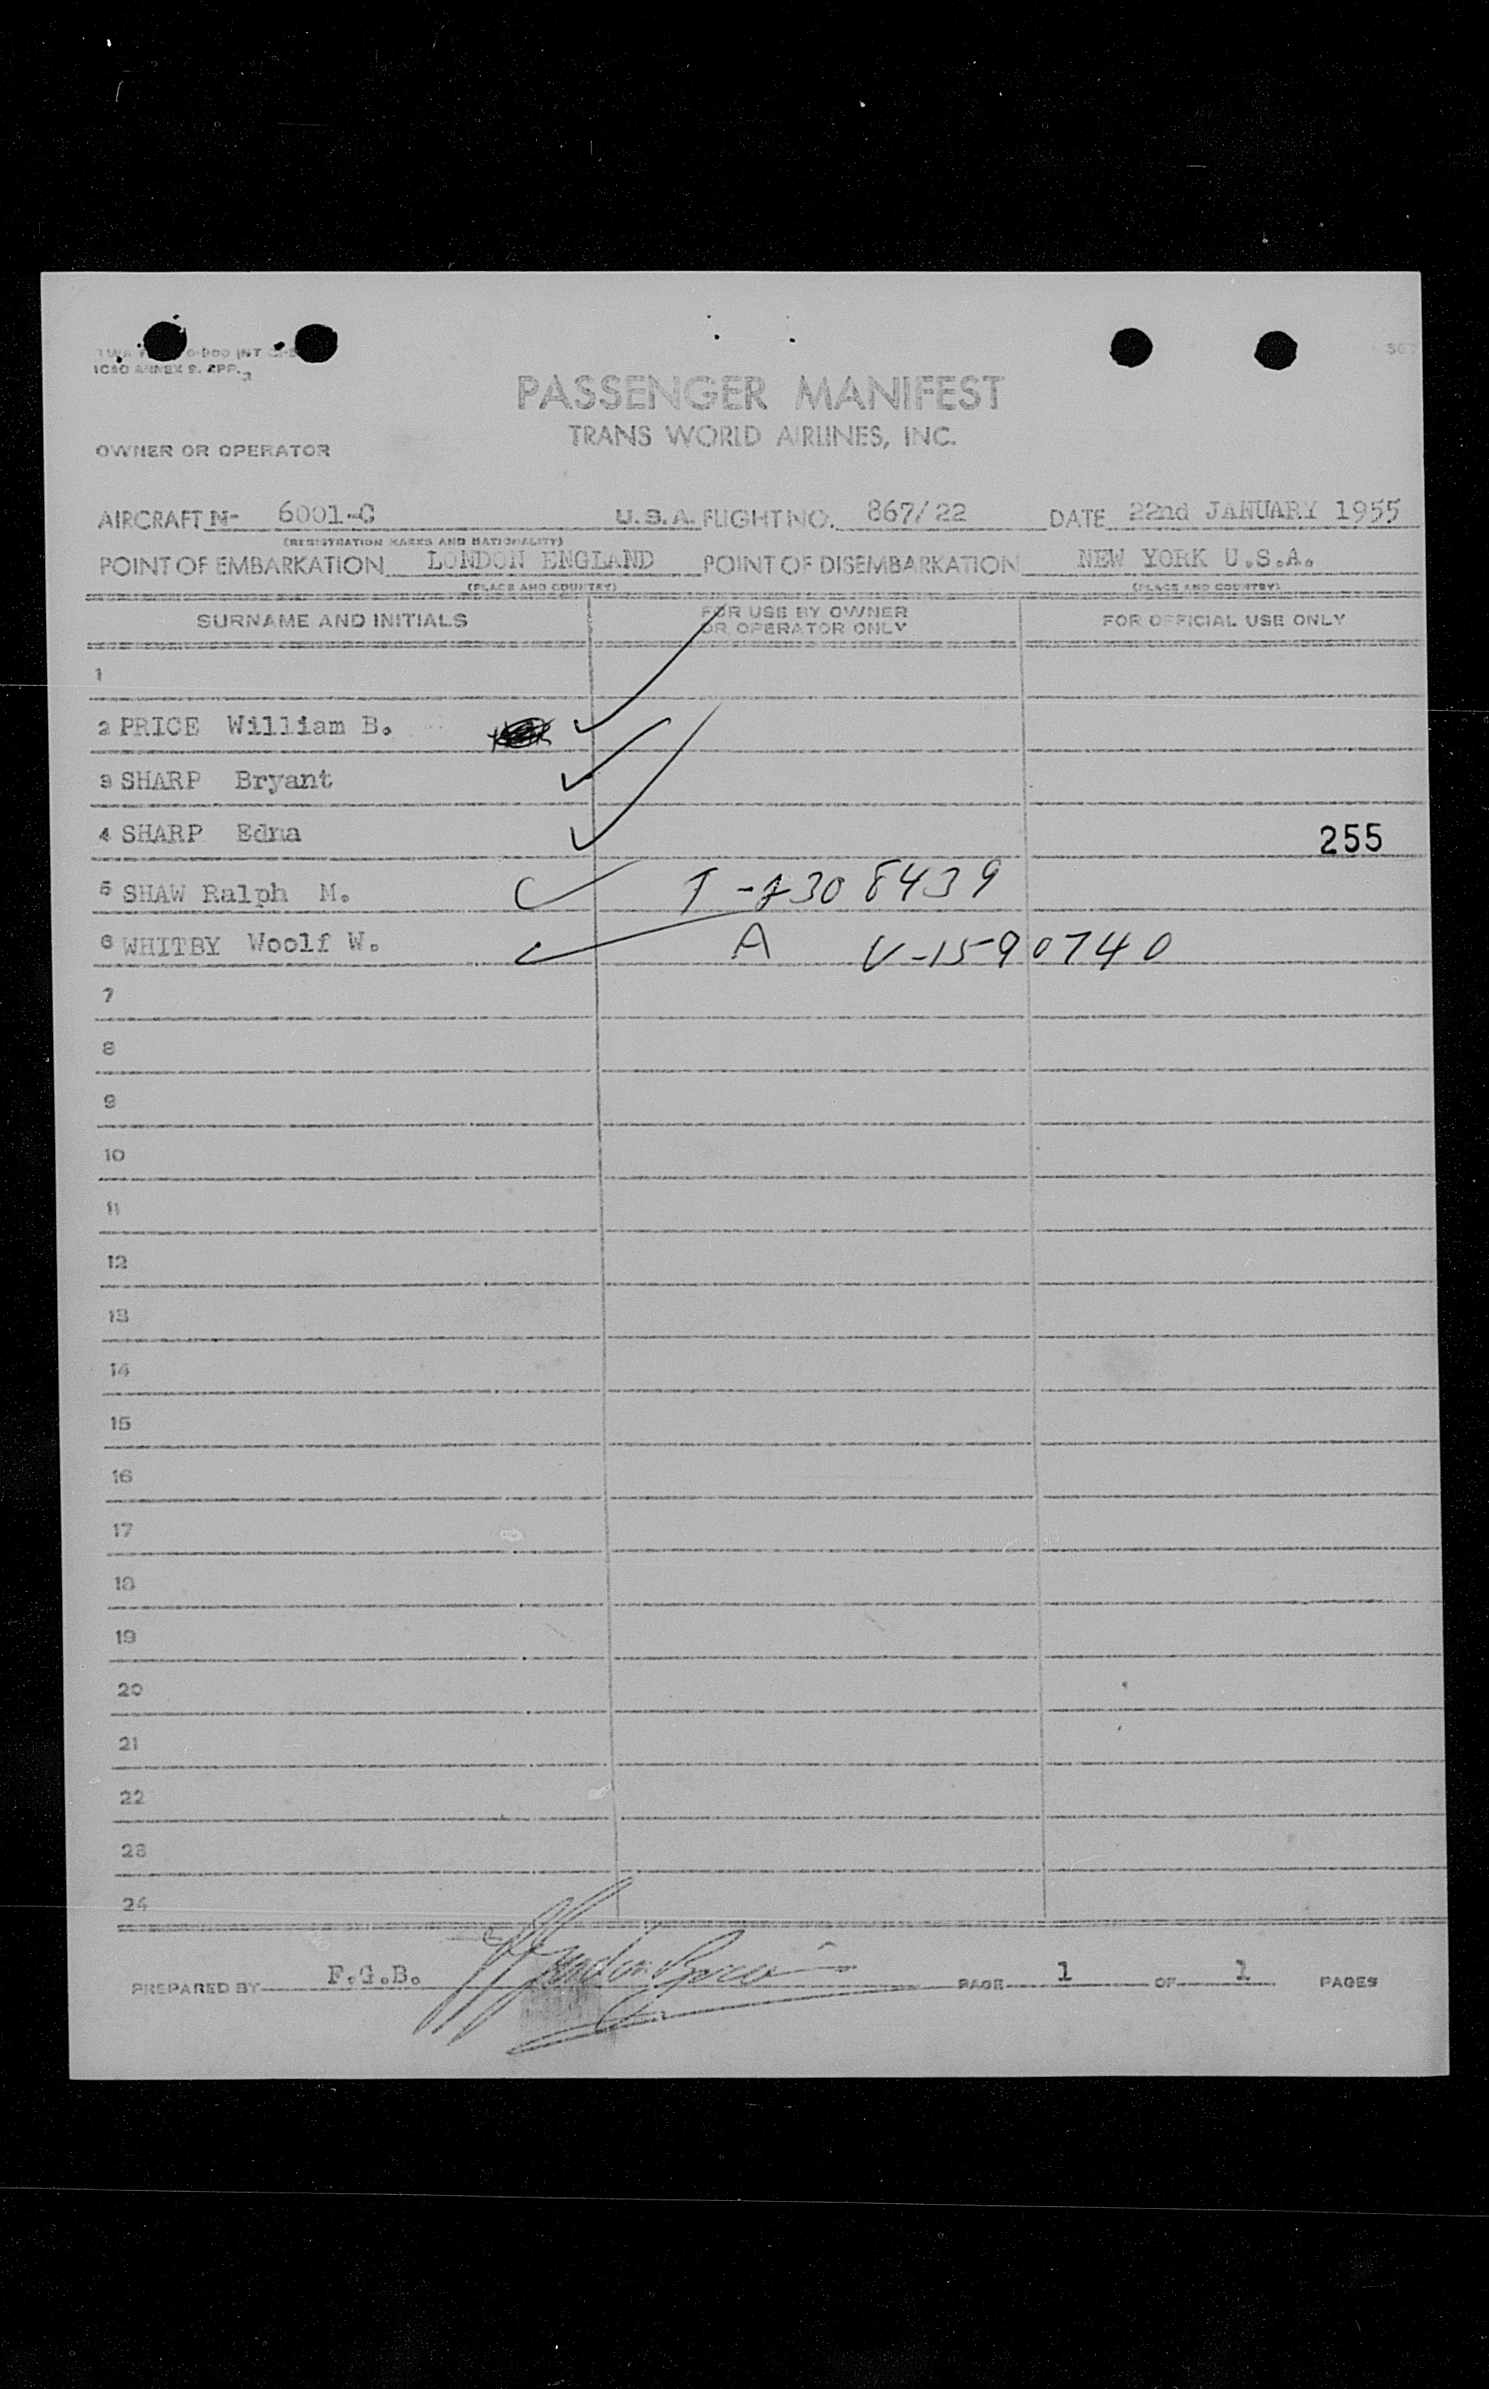 ICAO ANNEX 9. APP. 3
PASSENGER MANIFEST
TRANS WORLD AIRLINES, INC.
OWNER OR OPERATOR
AIRCRAFT N- 6001-C U.S.A. FLIGHT NO. 867/22 DATE 22nd JANUARY 1955
(REGISTRATION MARKS AND NATIONALITY)
POINT OF EMBARKATION LONDON ENGLAND POINT OF DISEMBARKATION NEW YORK U.S.A.
(PLACE AND COUNTRY) (PLACE AND COUNTRY)
SURNAME AND INITIALS FOR USE BY OWNER OR OPERATOR ONLY FOR OFFICIAL USE ONLY
1
2 PRICE William B.
3 SHARP Bryant
4 SHARP Edna 255
5 SHAW Ralph M. T-2308439
6 WHITBY Woolf W. A V-1590740
7
8
9
10
11
12
13
14
15
16
17
18
19
20
21
22
23
24
PREPARED BY F.G.B. PAGE 1 OF 1 PAGES